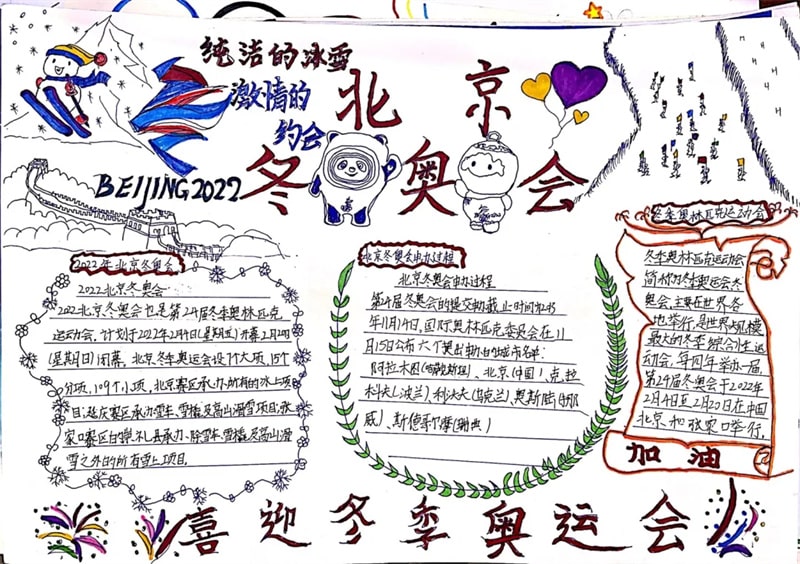 纯洁的冰雪
激情的
约会
北京
冬奥会
BEIJING2022
2022年北京冬奥会
2022北京冬奥会
2022北京冬奥会也是第24届冬季奥林匹克
运动会,计划于2022年2月4日(星期五)开幕2月20日
(星期日)闭幕,北京冬季奥运会设7个大项,15个
分项,109个小项,北京赛区承办所有的冰上项
目;延庆赛区承办雪车、雪橇及高山滑雪项目;张
家口赛区的崇礼县承办除雪车、雪橇及高山滑
雪之外的所有雪上项目.
北京冬奥会申办过程
北京冬奥会申办过程
第24届冬奥会的提交期截止时间为2013
年11月14日,国际奥林匹克委员会在11
月15日公布六个提出申办的城市名单:
阿拉木图(哈萨克斯坦)、北京(中国)、克拉
科夫(波兰)、利沃夫(乌克兰)奥斯陆(挪
威)、斯德哥尔摩(瑞典)
冬季奥林匹克运动会
冬季奥林匹克运动会
简称为冬季奥运会
奥会,主要在世界各
地举行,是世界规模
最大的冬季综合性运
动会,每四年举办一届,
第24届冬奥会于2022年
2月4日至2月20日在中国
北京和张家口举行,
加油
喜迎冬季奥运会